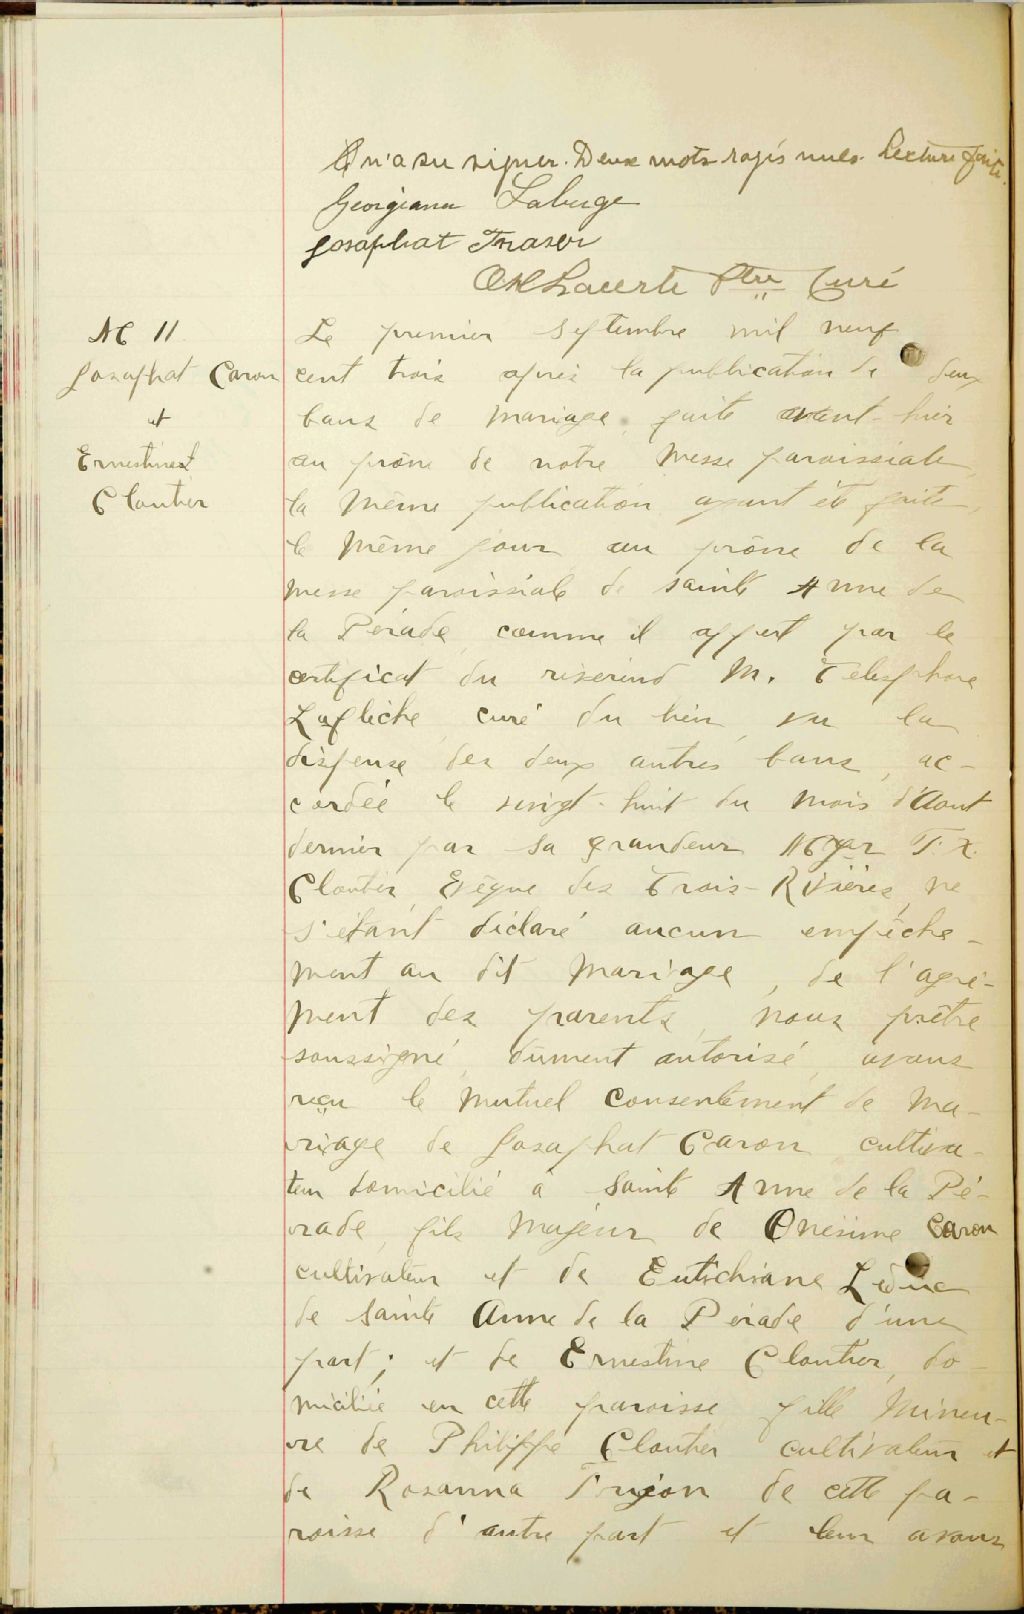 n'a su signer. Deux mots rayés nuls. Lecture faite.
Georgiana Laberge
Josaphat Fraser
Ptre Curé
M 11
Josaphat Caron
et
Ernestine
Cloutier
Le premier Septembre mil neuf
cent trois après la publication de deux
bans de mariage, faite avant-hier
au prône de notre Messe paroissiale,
la Même publication ayant été faite,
le Même jour au prône de la
Messe paroissiale de Sainte Anne de
la Pérade, comme il appert par le
certificat du révérend M. Télesphore
Laflèche, curé du lieu, vu la
dispense des deux autres bans, ac-
cordée le vingt-huit du Mois d'Aout
dernier par Sa grandeur Mgr F. X.
Cloutier, Evêque des Trois-Rivières, ne
s'étant déclaré aucun empêche-
ment au dit Mariage, de l'agré-
ment des parents, Nous prêtre
soussigné, dûment autorisé, avons
reçu le Mutuel Consentement de Ma-
riage de Josaphat Caron cultiva-
teur domicilié à Sainte Anne de la Pé-
rade, fils Majeur de Onésime Caron
cultivateur et de Eutichiane Leduc
de Sainte Anne de la Pérade d'une
part; et de Ernestine Cloutier, do-
miciliée en cette paroisse fille Mineu-
re de Philippe Cloutier cultivateur et
de Rosanna de cette pa-
roisse d'autre part et leur avons